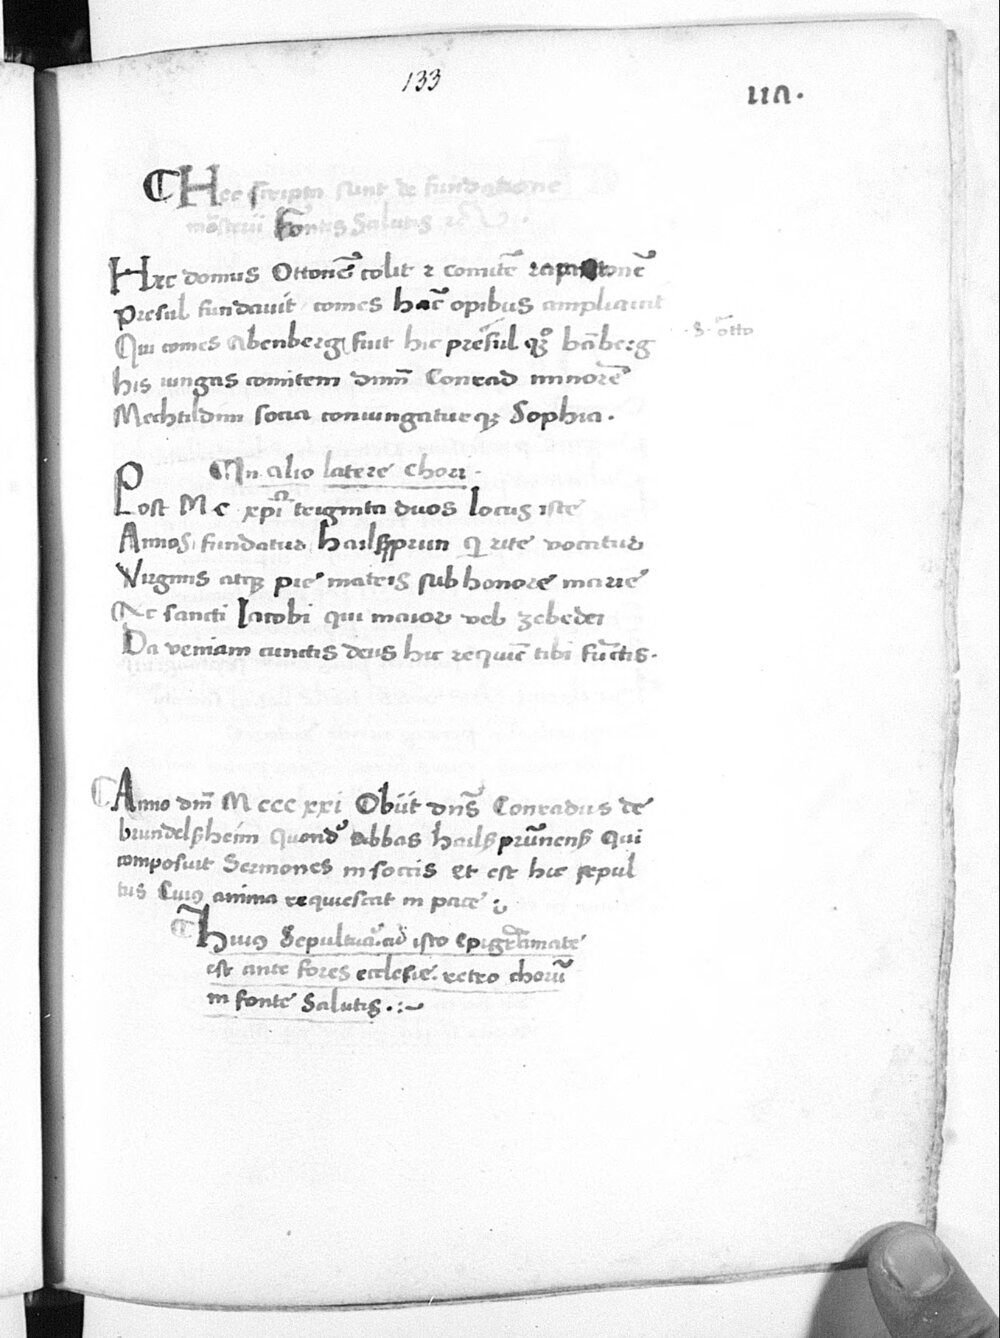 133
117.
Hec scripta sunt de fundatione
mōsterii Fontis Salutis
Hec domus Ottonē colit ⁊ comitē rapotonē
Presul fundavit comes hāc opibus ampliavit
Qui comes Abenberg fuit hic presul qꝫ bāberg
·S· otto
his iungas comitem dnm̄ Conrad minorē
Mechtildim socia coniungatur qꝫ Sophia.
In alio latere Chori.
Post M c xpī triginta duos locus iste
Annos fundatur hailsprun q rite vocatur
Virginis atqꝫ pie matris sub honore marie
Ac sancti Iacobi qui maior vel zebedei
Da veniam cunctis deus hic requiē tibi fūctis.
Anno dm̄ M ccc xxi Obiit dns̄ Conradus de
brundelsheim quond abbas hailsprūnens qui
composuit Sermones in soccis et est hic sepul
tus Cuiꝰ anima requiescat in pace
huiꝰ Sepultura ad isto epigrāmate
est ante fores ecclesie retro chorū
in fonte Salutis.